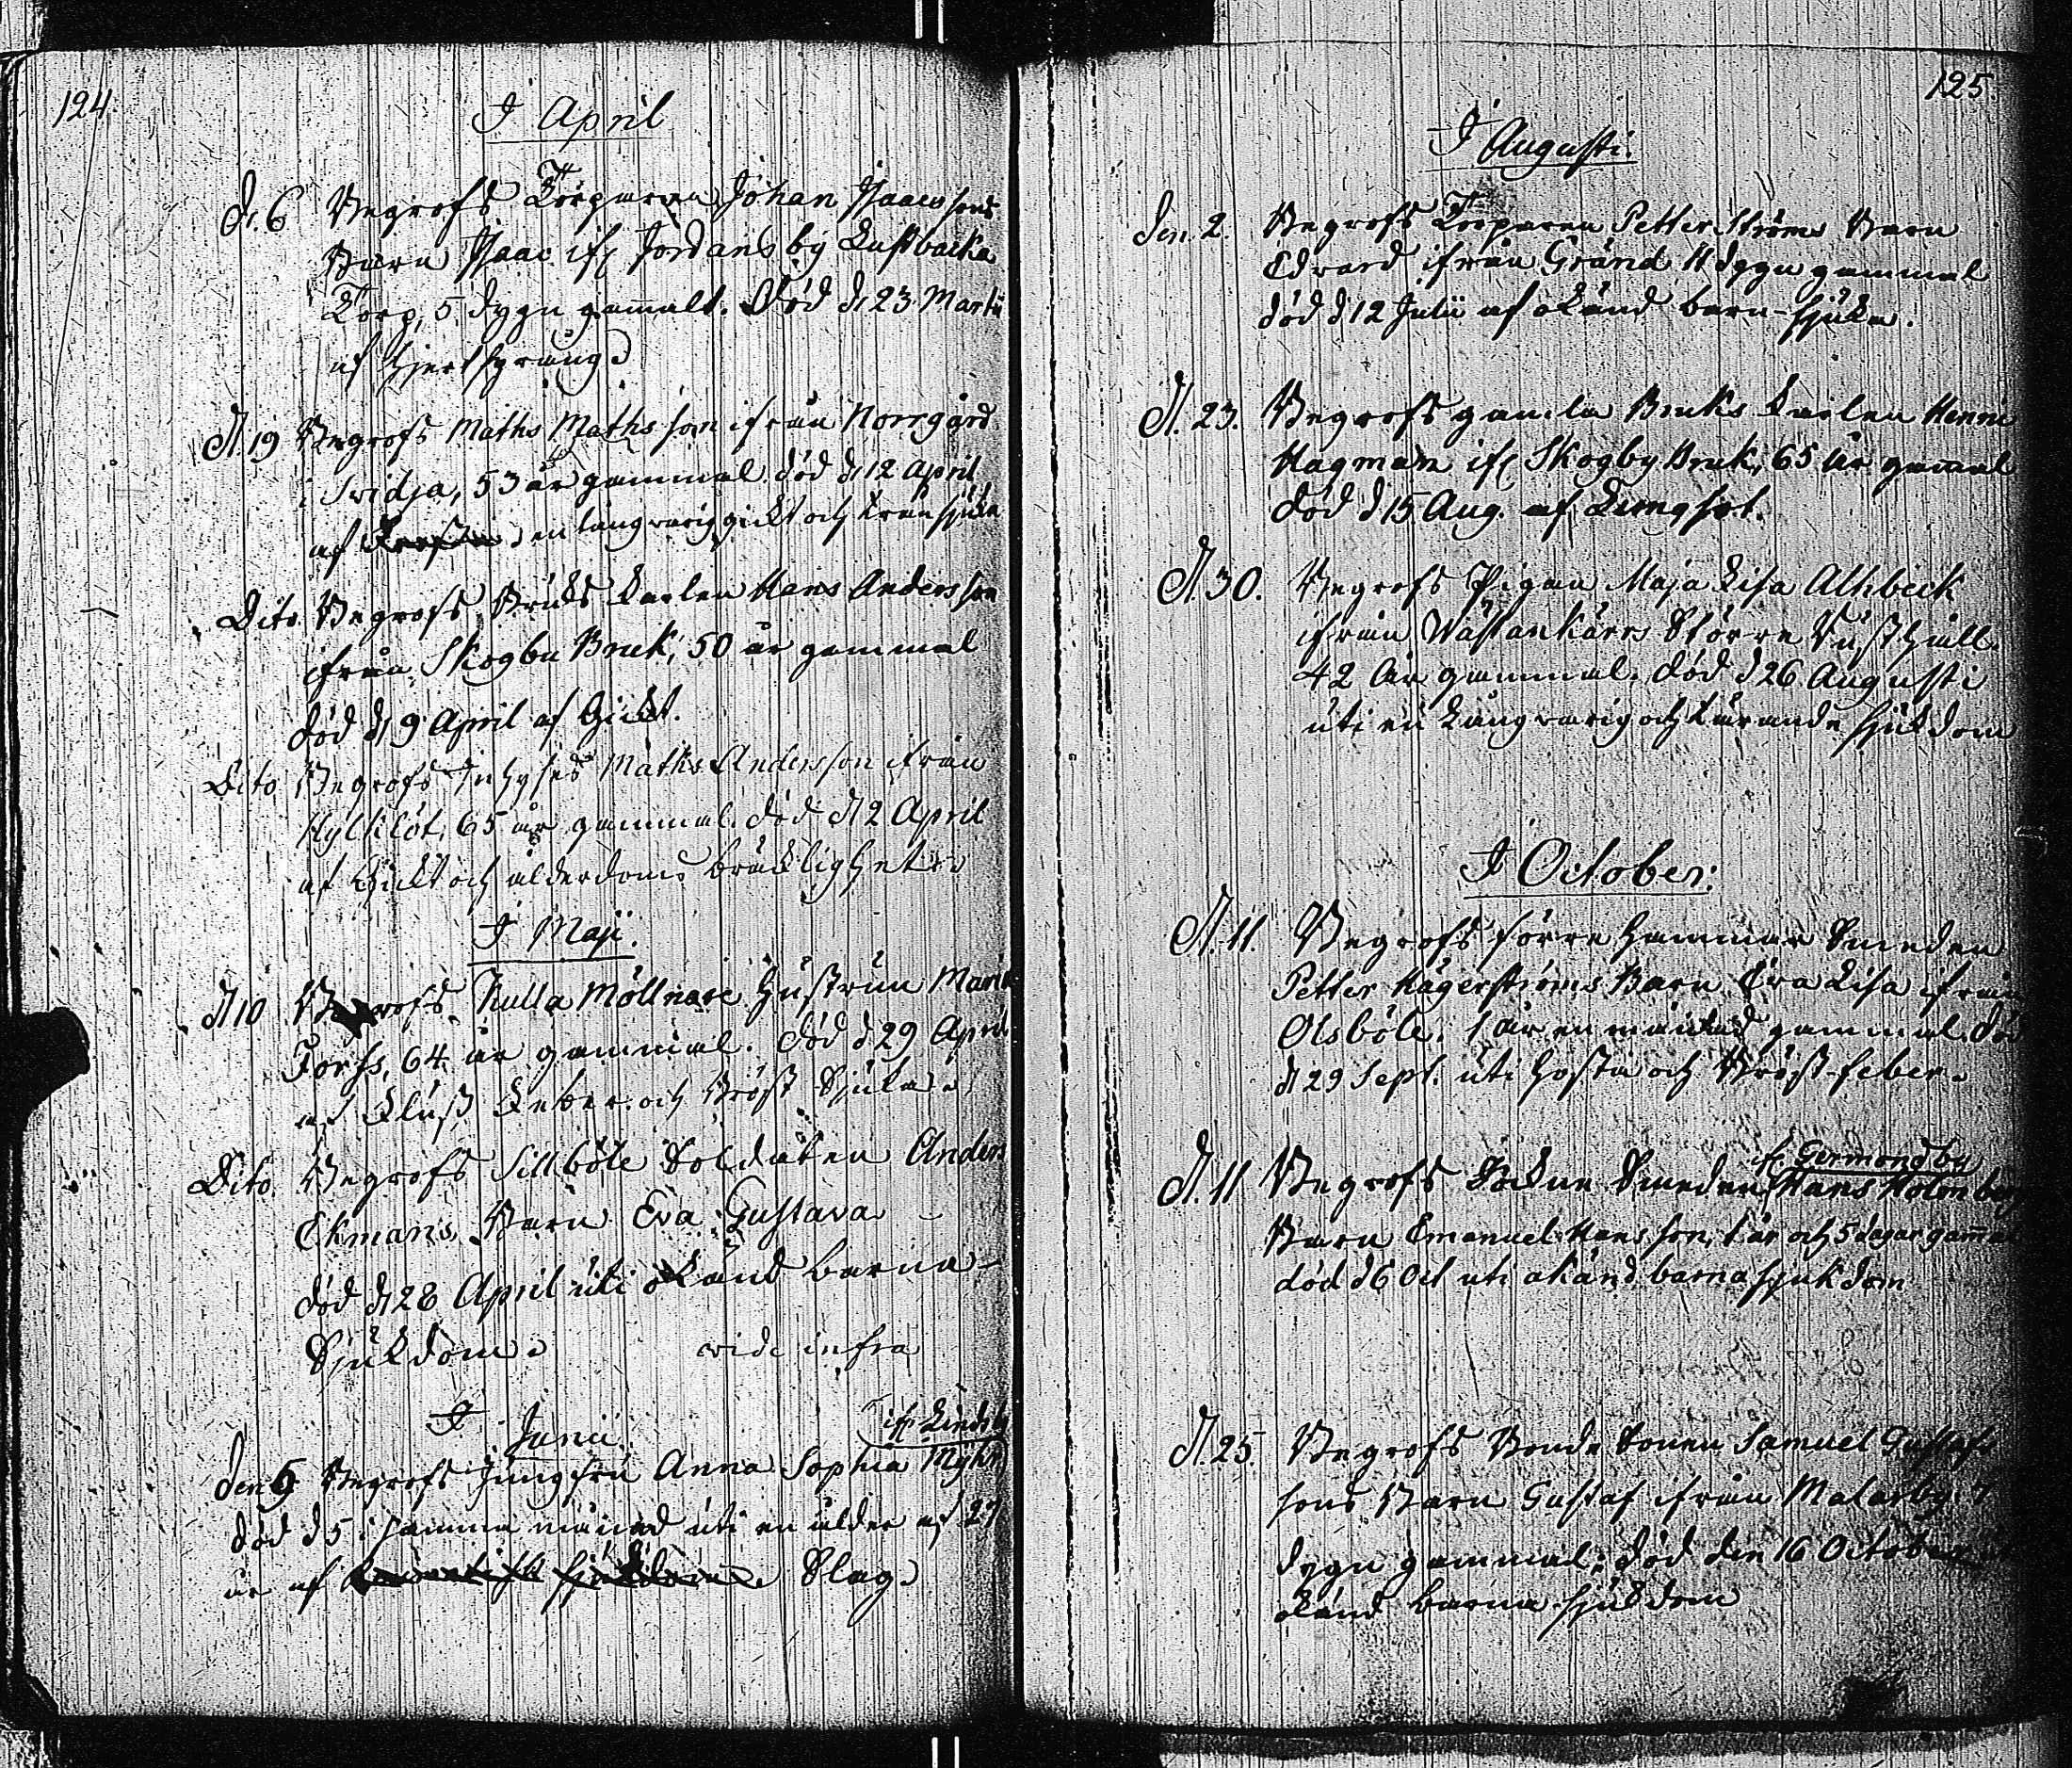 124.
I April
d. 6 Begrofs Torparen Johan Isaacssons
Barn Isaac ifr Jordansby Lustbacka
Torp, 5 dygn gamalt. Död d 23 Martii
af Hjertsprång.
d. 19 Begrofs Maths Mathsson ifrån Norrgård
i Svidja, 53 år gammal. död d 12 April
af en långvarig gickt och
Dito Begrofs Bruks Karlen Hans Andersson
ifrån Skogby Bruk, 50 år gammal
död d 9 April af Gickt.
Dito Begrofs Inhyses Maths Andersson ifrån
65 år gammal. död d 2 April
af Gickt och ålderdoms bräcklighet.
I Maji.
d 10 Begrofs Kulla Möllnare Hustrun Maria
Forss, 64 år gammal. död d 29 April
af och Bröst Sjuka.
Dito. Begrofs Sillböle Soldaten Anders
Ekmans Barn Eva Gustava
död d 28 April uti okänd barna-
Sjukdom. vide infra
I Junii.
ifr
den 9 Begrofs Jungfru Anna Sophia
död d 5 i samma månad uti en ålder af 27
år af Slag.
125.
I Augusti.
den 2. Begrofs Torparen Petter Ströms Barn
Edvard ifrån Gränd 11 dygn gammal
död d 12 Julii af okänd barn-sjuka.
d. 23. Begrofs gamla Bruks Karlen Henric
Hagman ifr Skogby Bruk, 65 år gamal
död d 15 Aug. af Lungsot.
d 30. Begrofs Pigan Maja Lisa Alhbeck
ifrån Wästankärrs Större Rusthåll.
42 år gammal. död d 26 Augusti
uti en Långvarig och tärande sjukdom
I October.
d. 11. Begrofs förre Hammar Smeden
Petter Hägerströms Barn Eva Lisa ifrån
Olsböle. 1 år en månad gammal. död
d 29 Sept. uti hosta och Bröst-feber.
ifr Germondby
d. 11 Begrofs Sockne Smeden Hans Holmberg
Barn Emanuel Hansson, 1 år och 5 dagar gamal
död d 6 Oct uti okänd barnasjukdom
d. 25. Begrofs Bonde Sonen Samuel Gustafs
sons Barn Gustaf ifrån Malarby. 7
dygn gammal; död den 16 October
okänd barna-sjukdom